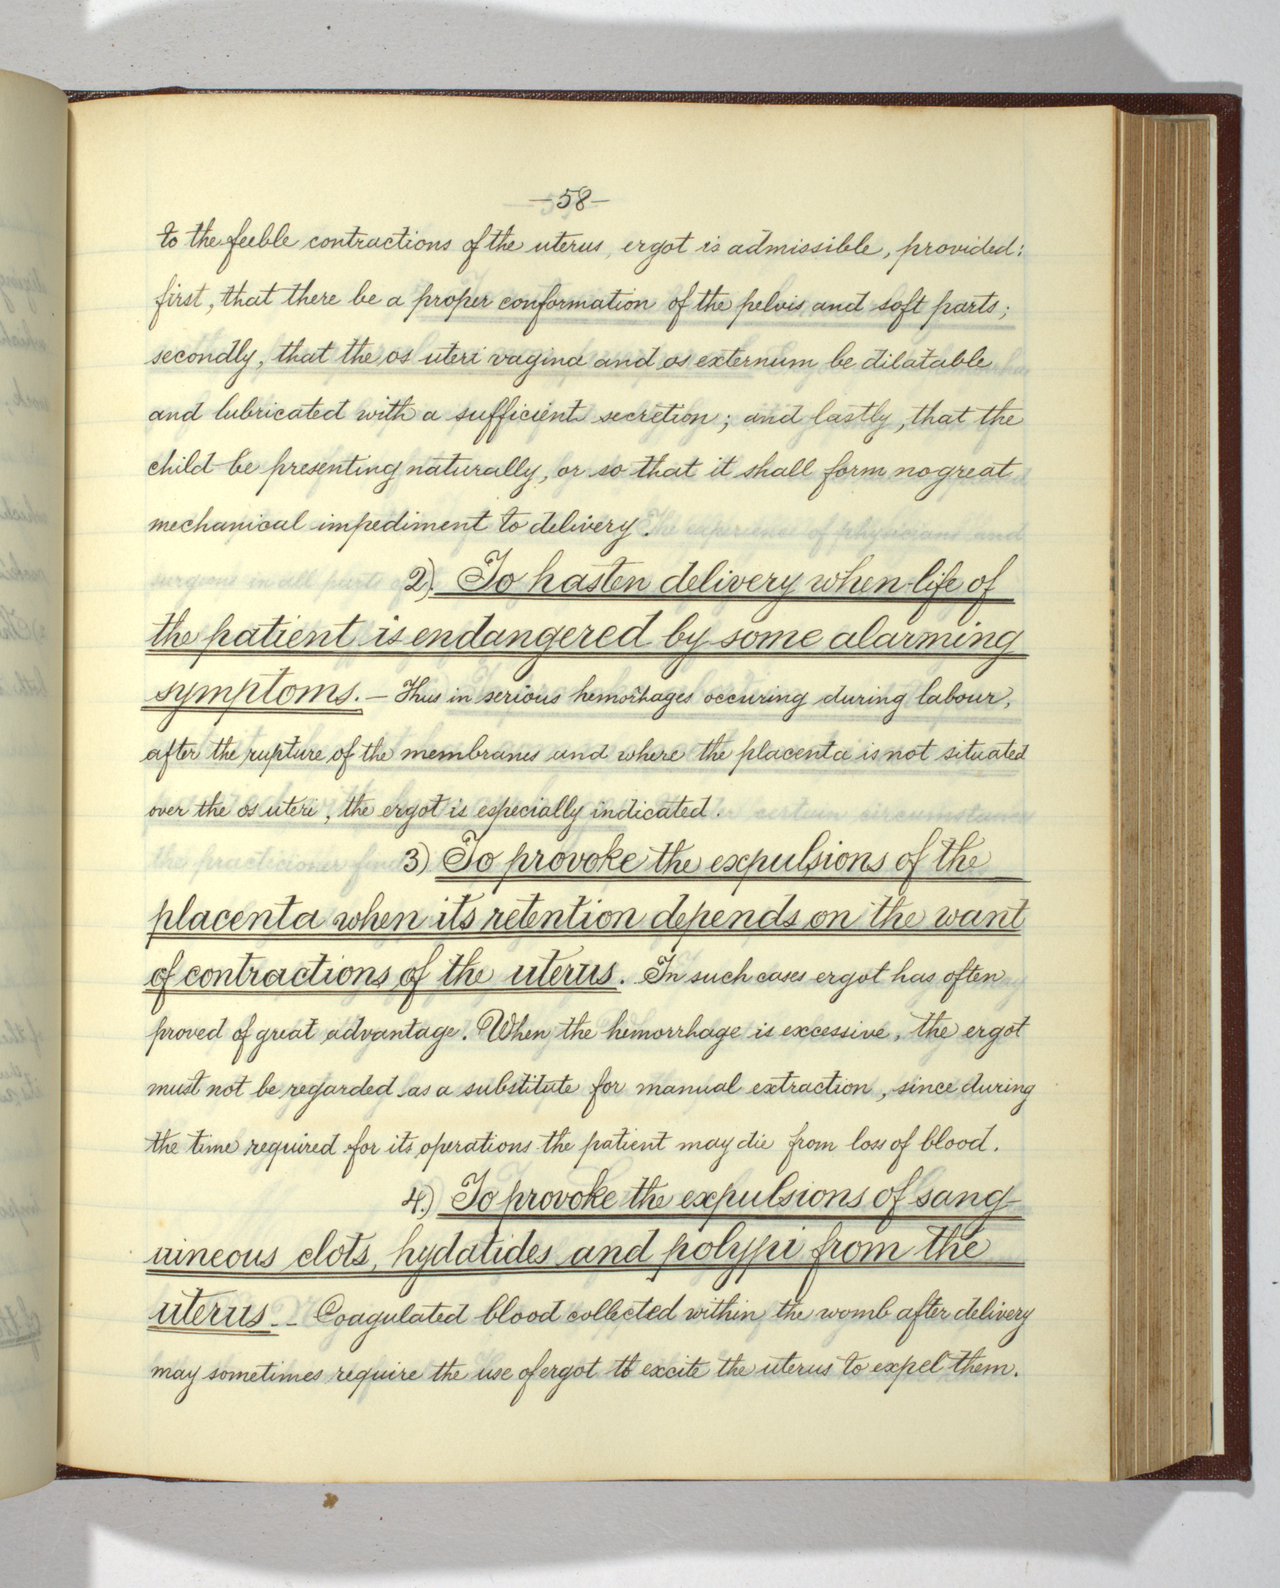 -58-
to the feeble contractions of the uterus, ergot is admissible, provided:
first, that there be a proper conformation of the pelvis and soft parts;
secondly, that the os uteri vagina and os externum be dilatable
and lubricated with a sufficient secretion; and lastly, that the
child be presenting naturally, or so that it shall form no great
mechanical impediment to delivery.
2). To hasten delivery when life of
the patient is endangered by some alarming
symptoms. — Thus in serious hemorhages occuring during labour,
after the rupture of the membranes and where the placenta is not situated
over the os uteri, the ergot is especially indicated.
3) To provoke the expulsions of the
placenta when its retention depends on the want
of contractions of the uterus. In such cases ergot has often
proved of great advantage. When the hemorrhage is excessive, the ergot
must not be regarded as a substitute for manual extraction, since during
the time required for its operations the patient may die from loss of blood.
4.) To provoke the expulsions of sang-
uineous clots, hydatides and polypi from the
uterus. - Coagulated blood collected within the womb after delivery
may sometimes require the use of ergot to excite the uterus to expel them.